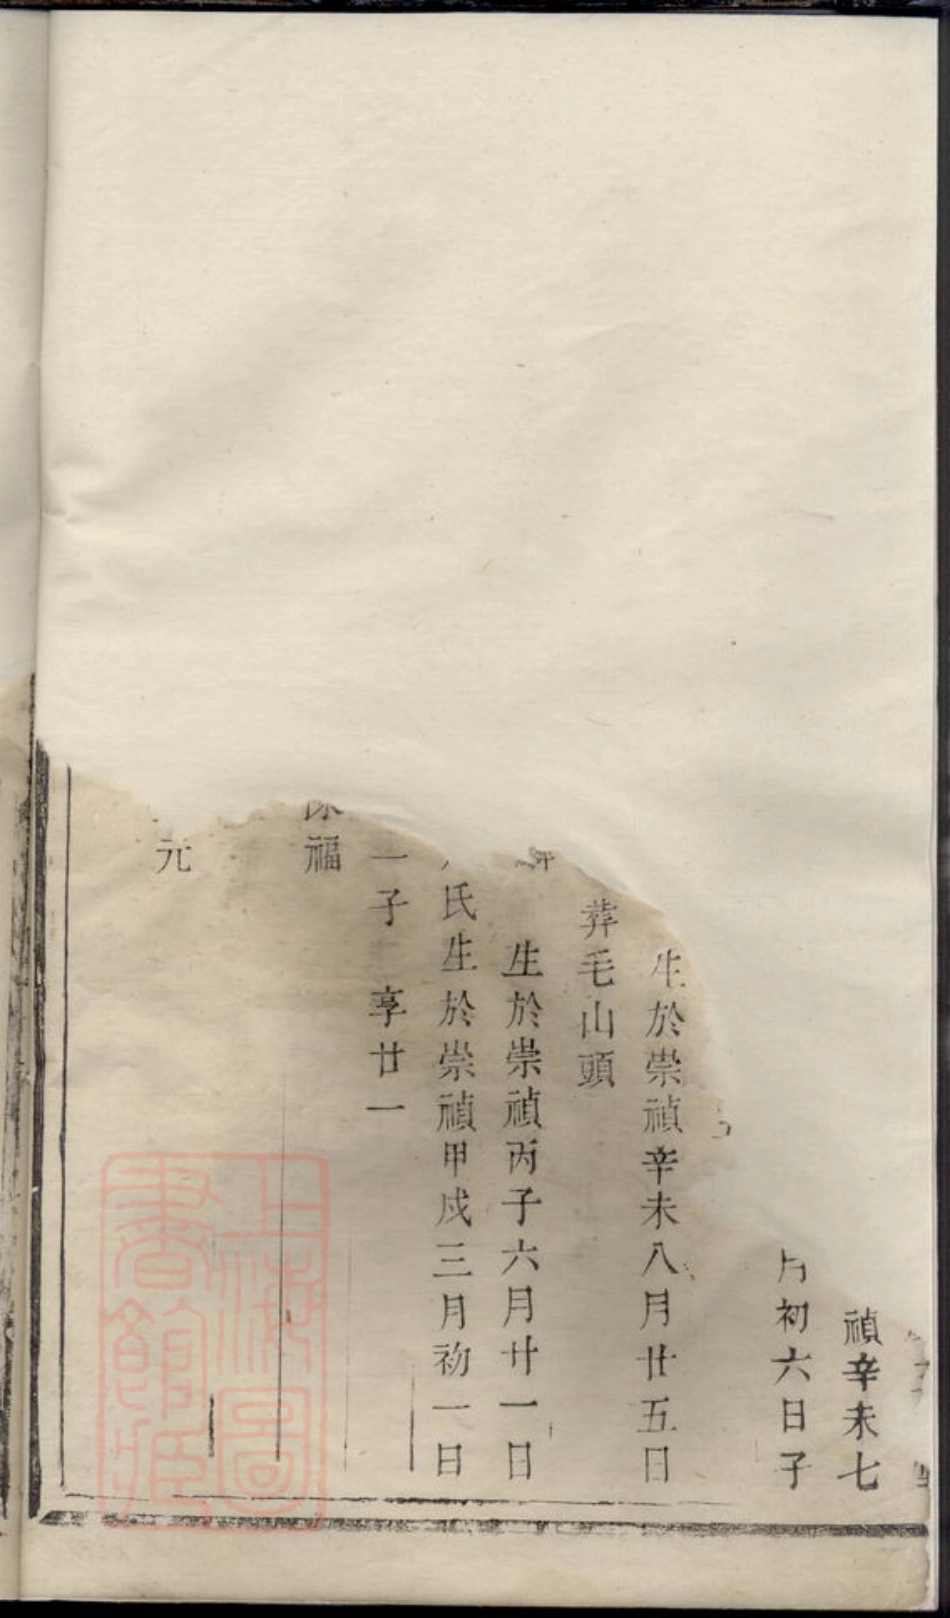 禎辛未七
月初六日子
生於崇禎辛未八月廿五日
葬毛山頭
生於崇禎丙子六月廿一日
氏生於崇禎甲戌三月初一日
一子 享廿一
福
元
上海圖書館藏